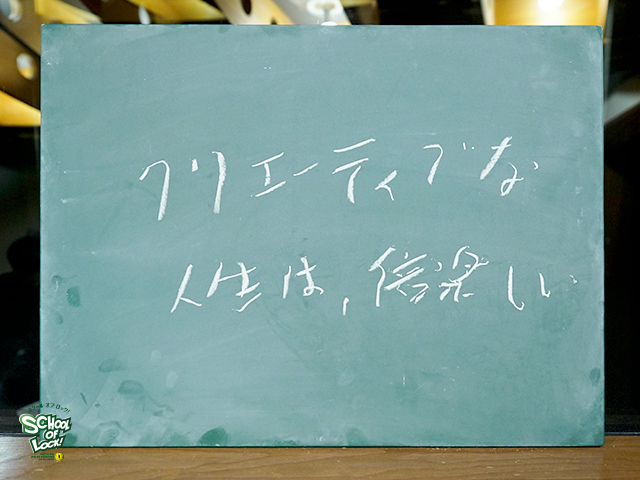 クリエーティブな
人生は,倍楽しい
スクール オブ ロック!
SCHOOL
OF
LOCK!